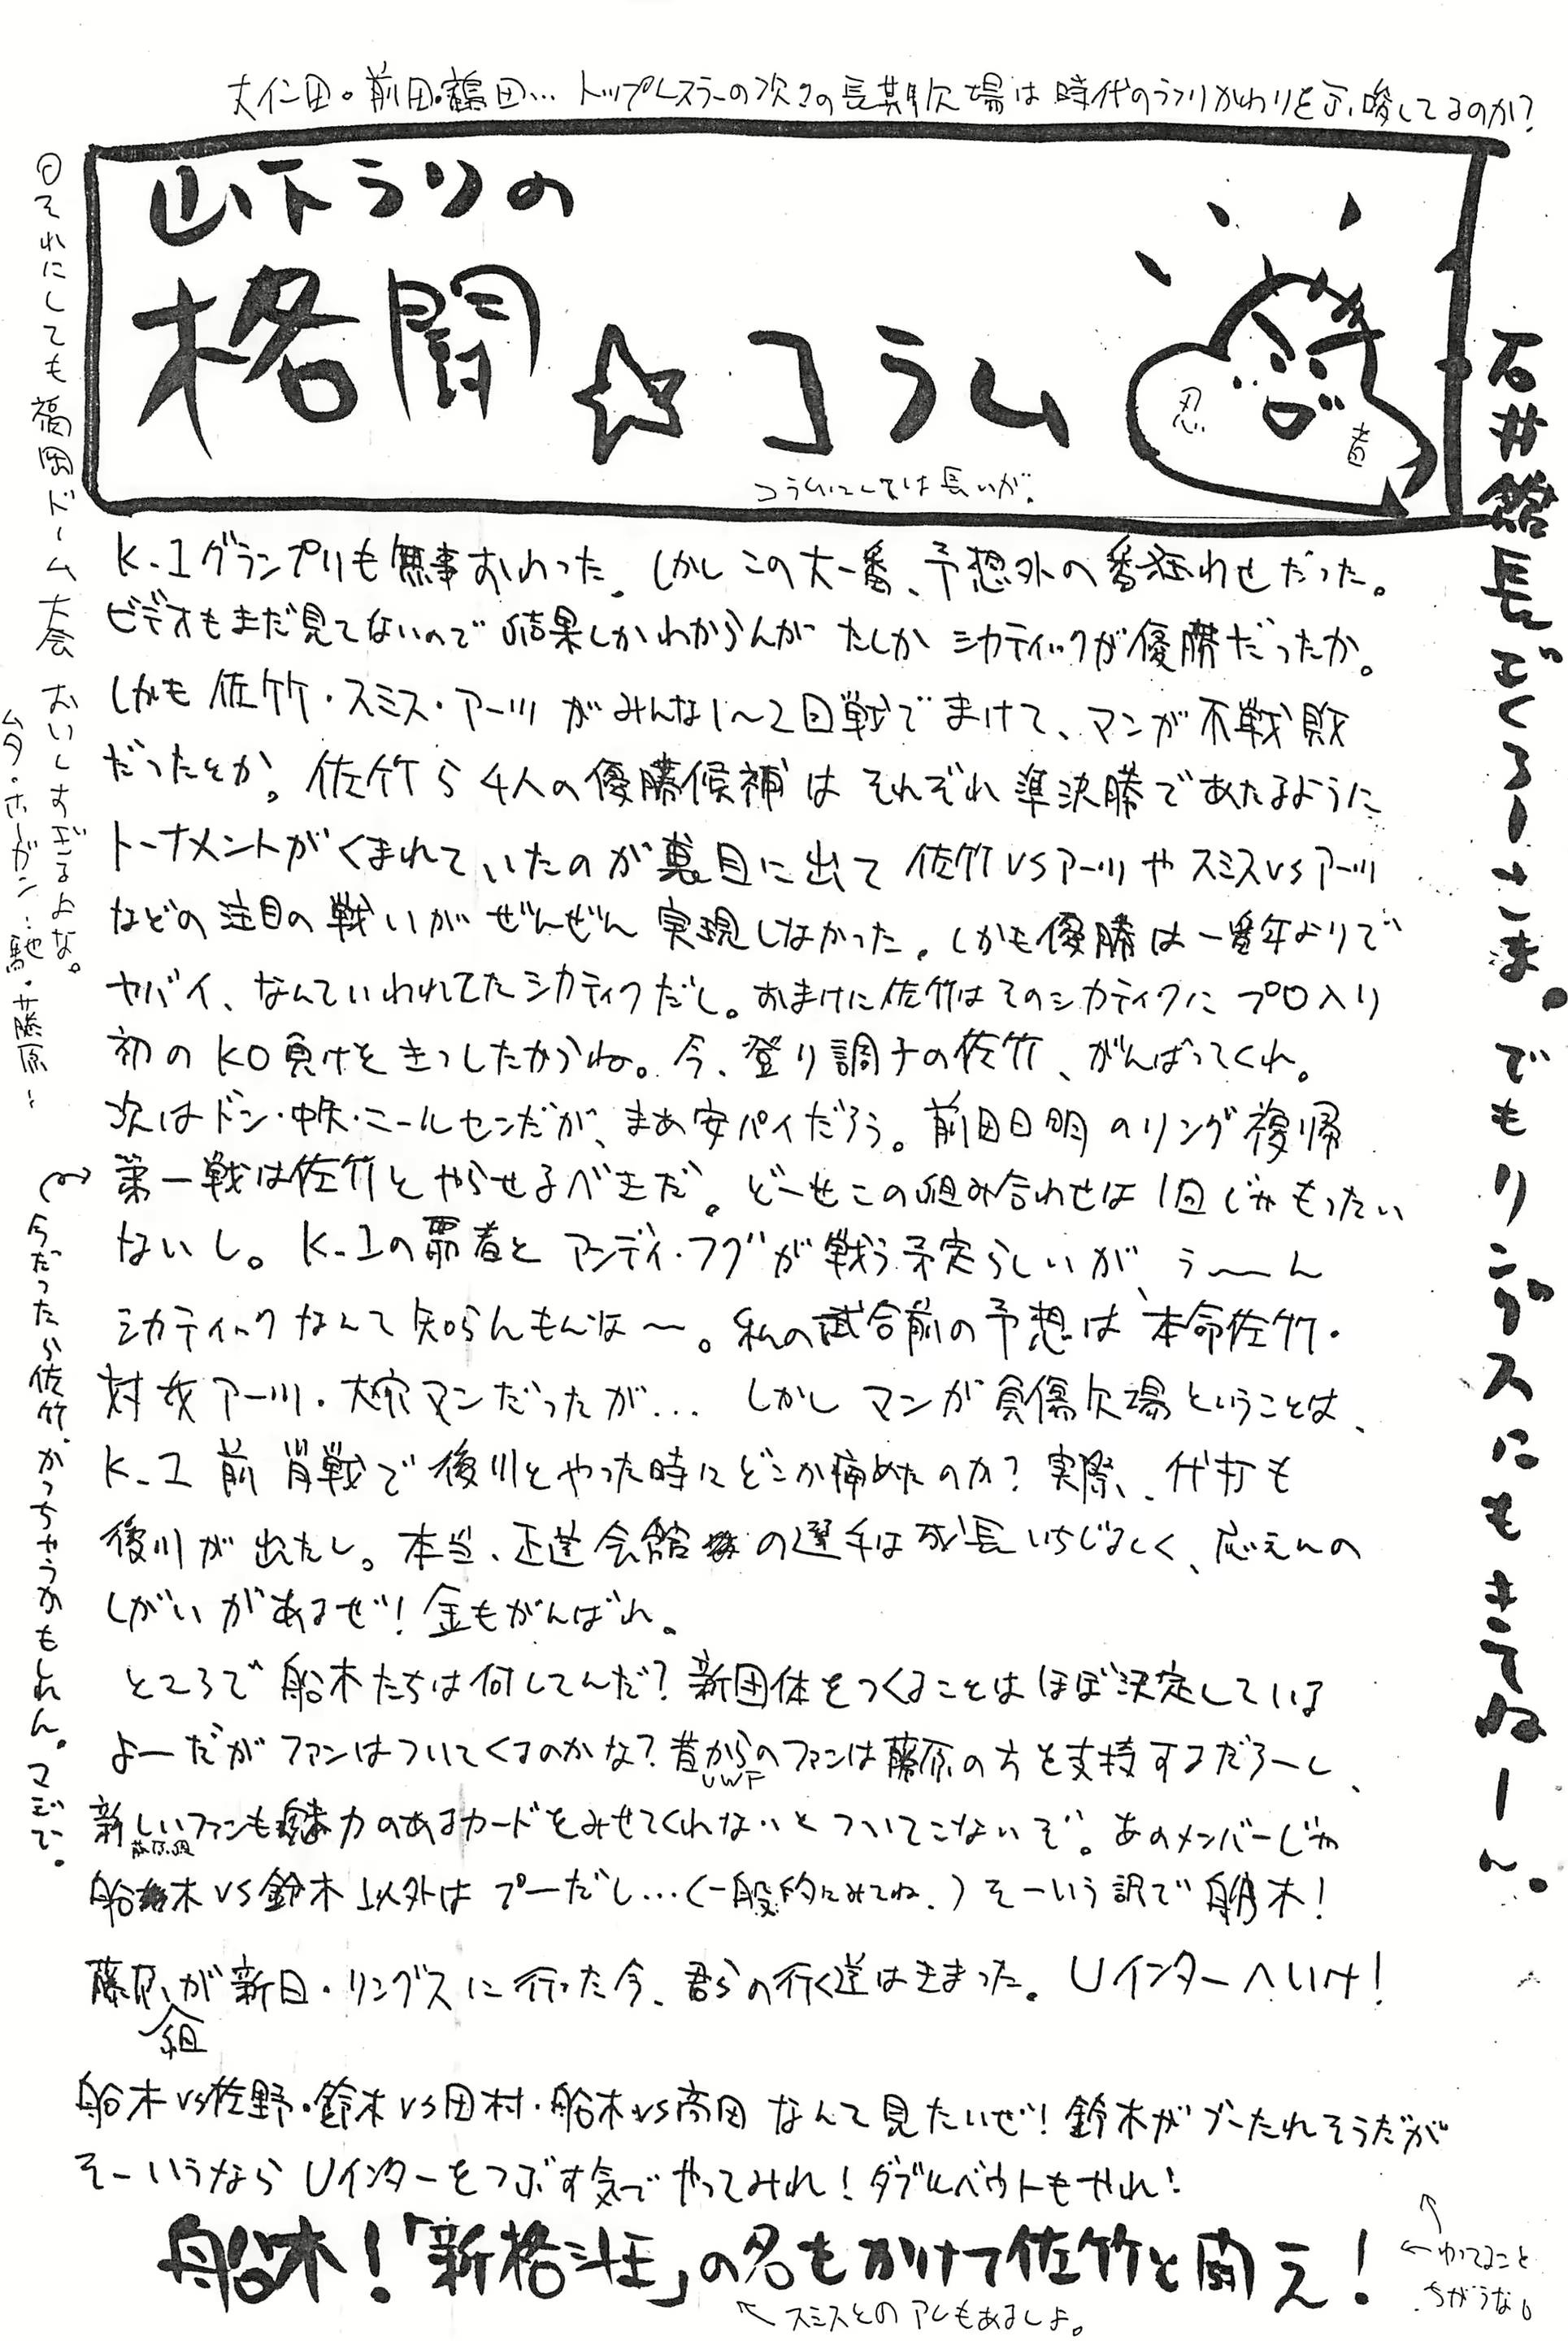 大仁田。前田・鶴田… トップレスラーの次々の長期欠場は時代のうつりかわりを示唆してるのか?
山下うりの
格闘☆コラム
忍
者
コラムにしては長いが。
石井館長ごくろーさま。でもリングスにもきてねーん。
◎それにしても福岡ドーム大会 おいしすぎるよな。
ムタ・ホーガン…馳・藤原…
K-1グランプリも無事おわった。しかしこの大一番、予想外の番狂わせだった。
ビデオもまだ見てないので結果しかわからんがたしかシカティックが優勝だったか。
しかも佐竹・スミス・アーツがみんな1〜2回戦でまけて、マンが不戦敗
だったとか。佐竹ら4人の優勝候補はそれぞれ準決勝であたるように
トーナメントがくまれていたのが裏目に出て佐竹VSアーツやスミスVSアーツ
などの注目の戦いがぜんぜん実現しなかった。しかも優勝は一番年よりで
ヤバイ、なんていわれてたシカティクだし。おまけに佐竹はそのシカティクにプロ入り
初のKO負けをきっしたからね。今、登り調子の佐竹、がんばってくれ。
次はドン・中矢・ニールセンだが、まあ安パイだろう。前田日明のリング復帰
第一戦は佐竹とやらせるべきだ。どーせこの組み合わせは1回じゃもったい
ないし。K-1の覇者とアンディ・フグが戦う予定らしいが、う〜〜ん
シカティックなんて知らんもんな〜。私の試合前の予想は本命佐竹・
対抗アーツ・大穴マンだったが… しかしマンが負傷欠場ということは、
K-1前哨戦で後川とやった時にどこか痛めたのか?実際、代打も
後川が出たし。本当、正道会館の選手は成長いちじるしく、応えんの
しがいがあるぜ!金もがんばれ。
今だったら佐竹、かっちゃうかもしれん。マジで。
ところで船木たちは何してんだ?新団体をつくることはほぼ決定している
よーだがファンはついてくるのかな?昔からのファンは藤原の方を支持するだろーし、
UWF
新しいファンも魅力のあるカードをみせてくれないとついてこないぞ。あのメンバーじゃ
藤原組
船木VS鈴木以外はプーだし…(一般的にみてね。)そーいう訳で船木!
藤原が新日・リングスに行った今、君らの行く道はきまった。Uインターへいけ!
組
船木VS佐野・鈴木VS田村・船木VS高田なんて見たいぜ!鈴木がブーたれそうだが
そーいうなら Uインターをつぶす気でやってみれ!ダブルベウトもやれ!
船木!「新格斗王」の名もかけて佐竹と闘え!
←スミスとのアレもあるしよ。
←ゆってること
ちがうな。